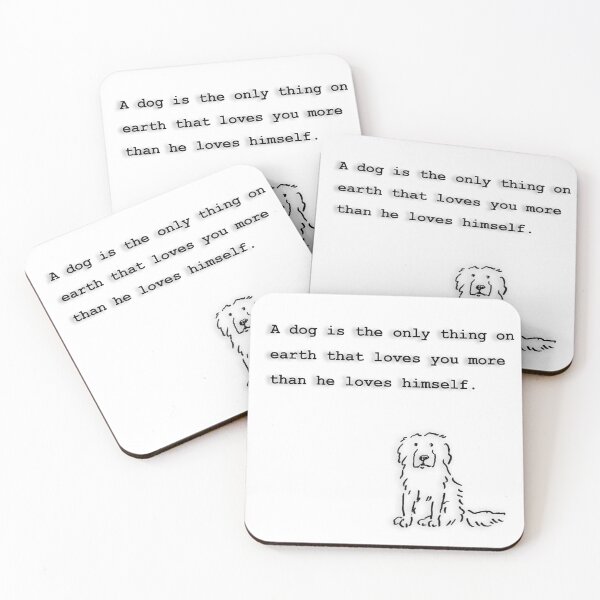 A dog is the only thing on
earth that loves you more
than he loves himself.
A dog is the only thing on
earth that loves you more
than he loves himself.
A dog is the only thing on
earth that loves you more
than he loves himself.
A dog is the only thing on
earth that loves you more
than he loves himself.